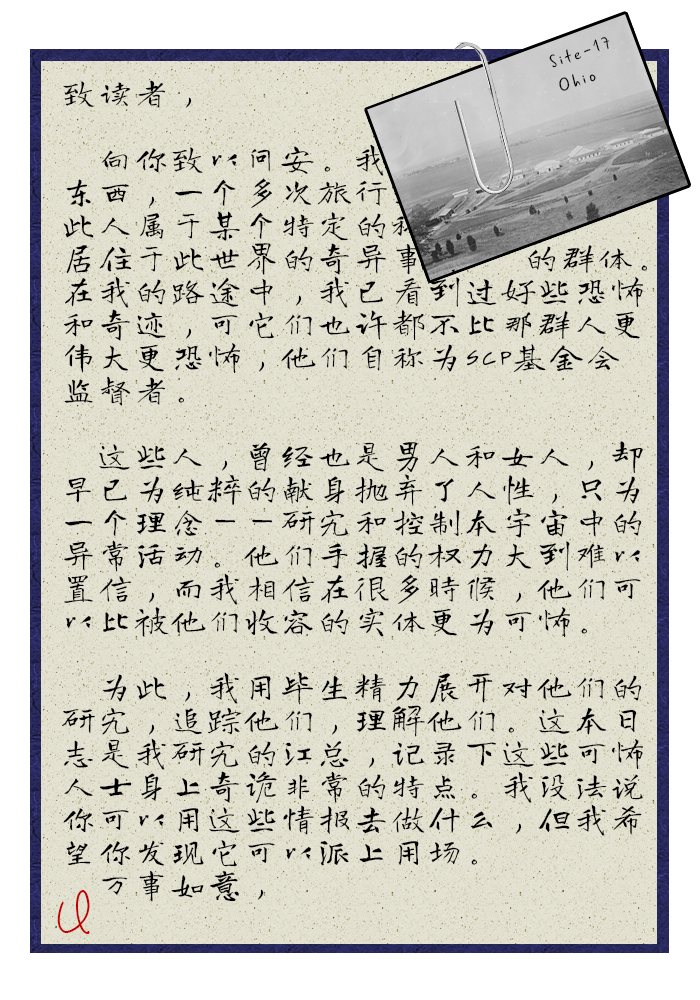 Site-17
Ohio
致读者，
向你致以问安。我
东西，一个多次旅行
此人属于某个特定的
居住于此世界的奇异事 的群体。
在我的路途中，我已看到过好些恐怖
和奇迹，可它们也许都不比那群人更
伟大更恐怖，他们自称为SCP基金会
监督者。
这些人，曾经也是男人和女人，却
早已为纯粹的献身抛弃了人性，只为
一个理念——研究和控制本宇宙中的
异常活动。他们手握的权力大到难以
置信，而我相信在很多時候，他们可
以比被他们收容的实体更为可怖。
为此，我用毕生精力展开对他们的
研究，追踪他们，理解他们。这本日
志是我研究的江总，记录下这些可怖
人士身上奇诡非常的特点。我没法说
你可以用这些情报去做什么，但我希
望你发现它可以派上用场。
万事如意，